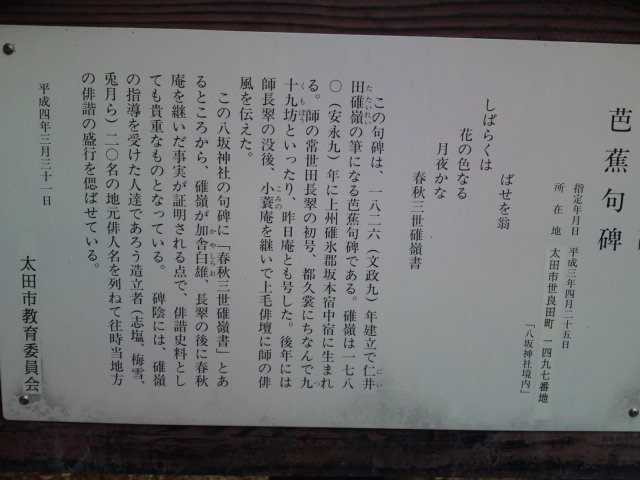 芭蕉句碑
指定年月日 平成三年四月二十五日
所在地 太田市世良田町一四九七番地
「八坂神社境内」
ばせを翁
しばらくは
花の色なる
月夜かな
春秋三世碓嶺書
この句碑は、一八二六(文政九)年建立で仁井
田碓嶺の筆になる芭蕉句碑である。碓嶺は一七八
〇(安永九)年に上州碓氷郡坂本宿中宿に生まれ
る。師の常世田長翠の初号、都久裳にちなんで九
十九坊といったり、昨日庵とも号した。後年には
師長翠の没後、小蓑庵を継いで上毛俳壇に師の俳
風を伝えた。
この八坂神社の句碑に「春秋三世碓嶺書」とあ
るところから、碓嶺が加舎白雄、長翠の後に春秋
庵を継いだ事実が証明される点で、俳諧史料とし
ても貴重なものとなっている。 碑陰には、碓嶺
の指導を受けた人達であろう造立者(志塩、梅雪、
兎月ら)二〇名の地元俳人名を列ねて往時当地方
の俳諧の盛行を偲ばせている。
平成四年三月三十一日
太田市教育委員会